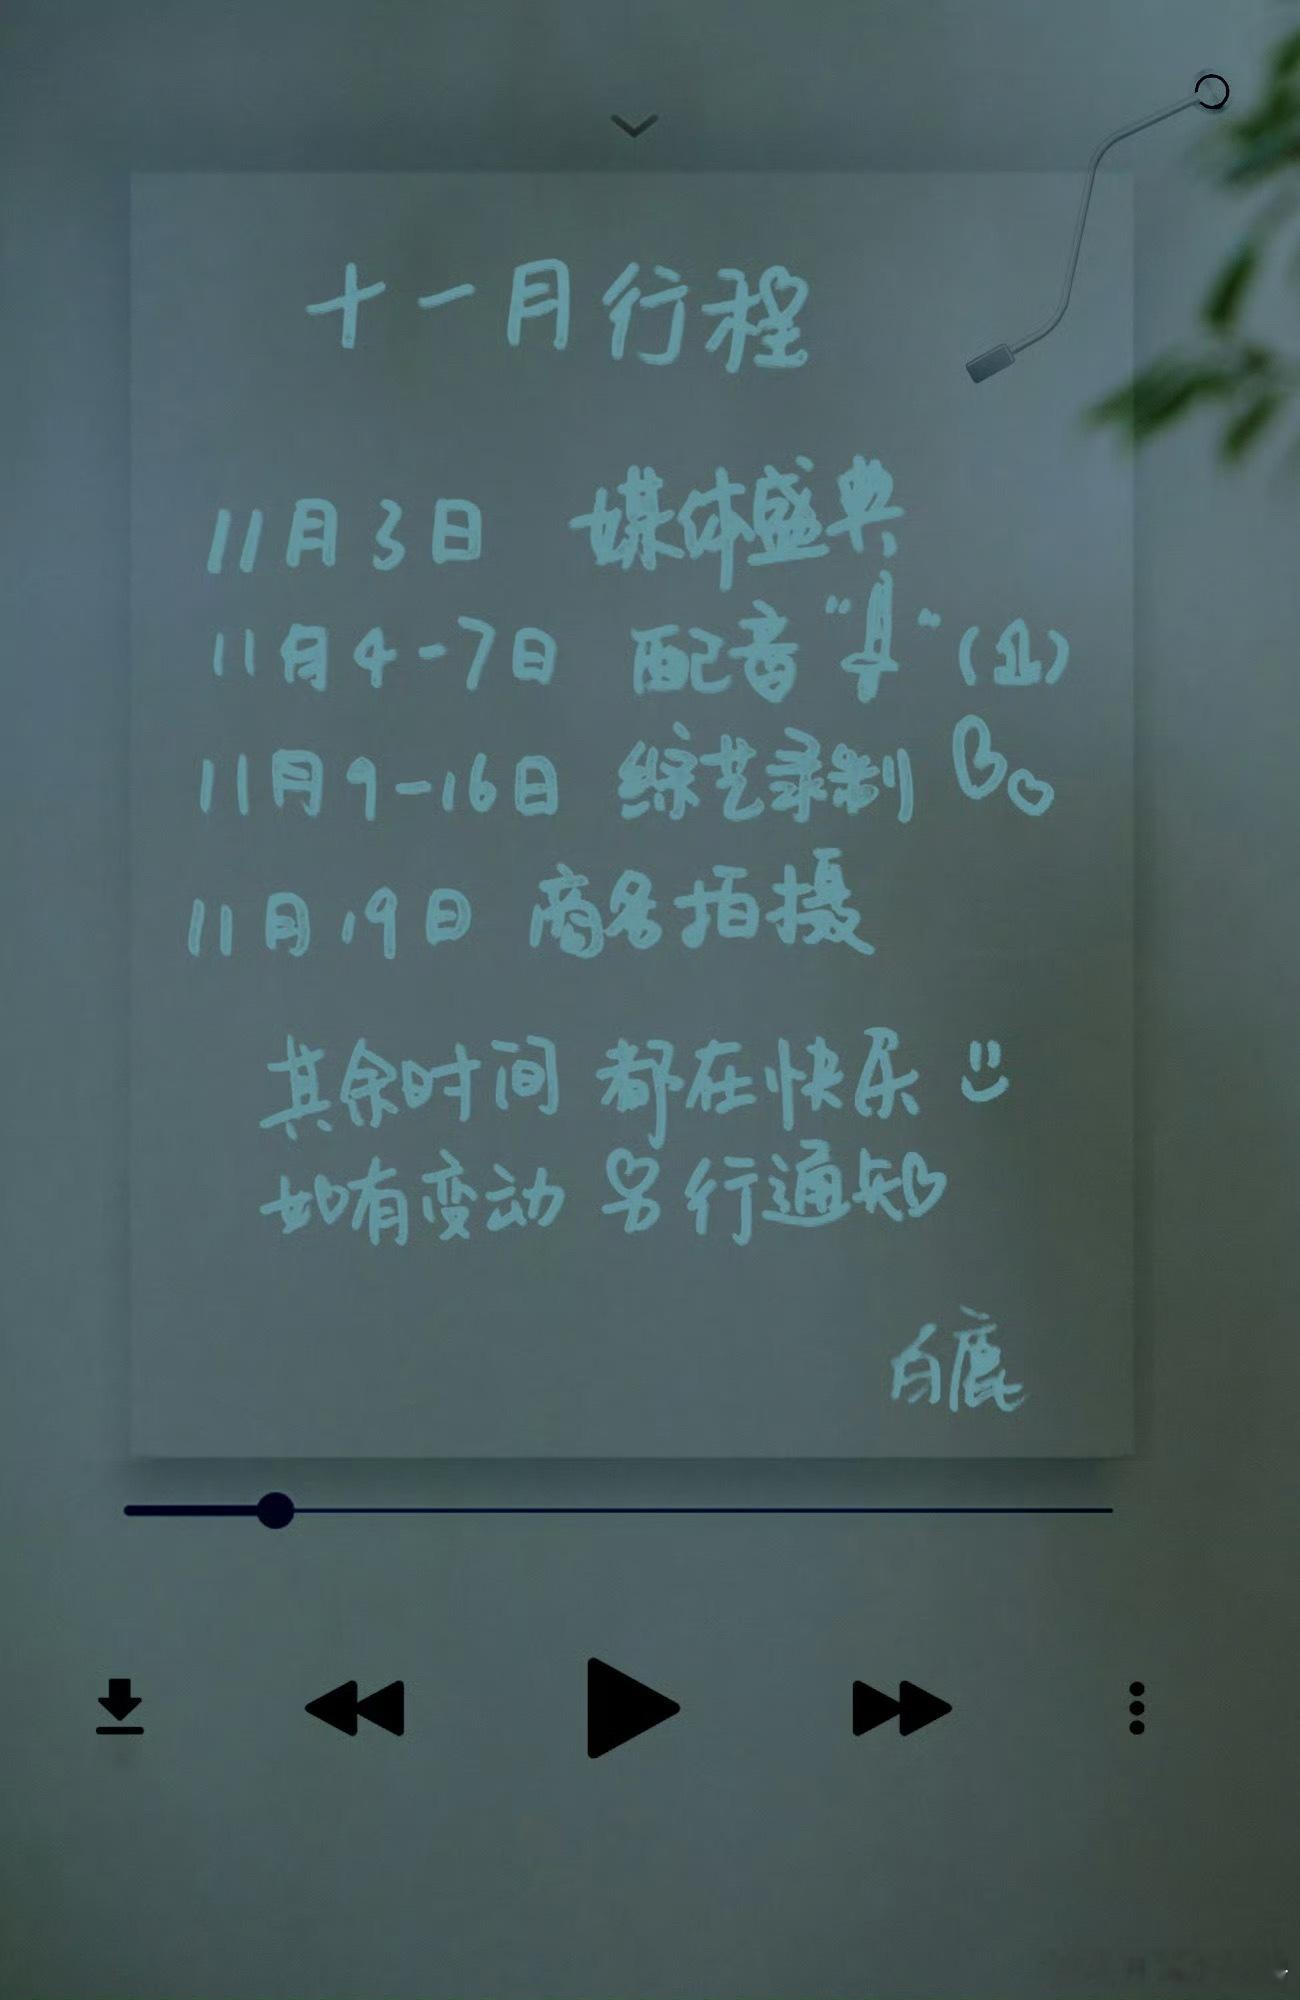 十一月行程
11月3日 媒体盛典
11月4-7日 配音“ ”(1)
11月9-16日 综艺录制
11月19日 商务拍摄
其余时间 都在快乐
如有变动 另行通知
白鹿